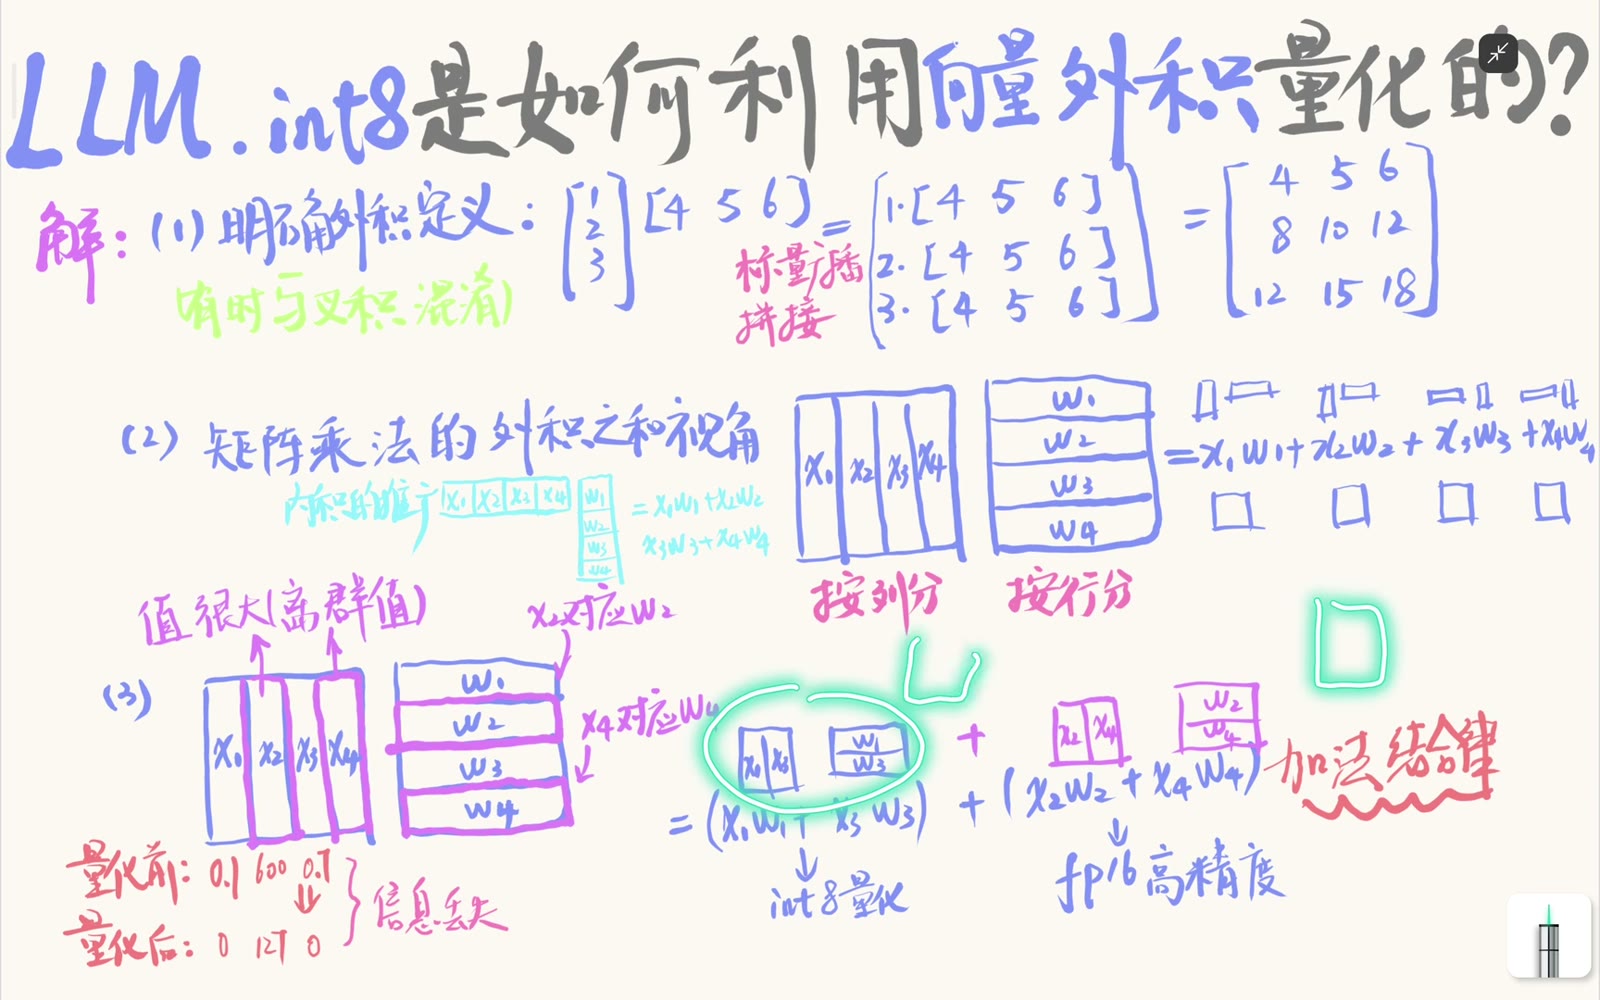 LLM.int8是如何利用向量外积量化的?
解: (1) 明确外积定义: [1 2 3] [4 5 6] = [1·[4 5 6] 2·[4 5 6] 3·[4 5 6]] = [4 5 6 8 10 12 12 15 18]
有时与叉积混淆)
标量广播
拼接
(2) 矩阵乘法的外积之和视角
x1 x2 x3 x4
w1
w2
w3
w4
=x1w1+x2w2+x3w3+x4w4
内积的推广 x1 x2 x3 x4
w1
w2
w3
w4
=x1w1+x2w2
x3w3+x4w4
按列分 按行分
值很大(离群值) x2对应w2
(3) x1 x2 x3 x4
w1
w2
w3
w4
x4对应w4
x1 x3 w1 w3 + x2 x4 w2 w4
=(x1w1+x3w3)+(x2w2+x4w4) 加法结合律
int8量化 fp16高精度
量化前: 0.1 600 0.7
量化后: 0 127 0
信息丢失